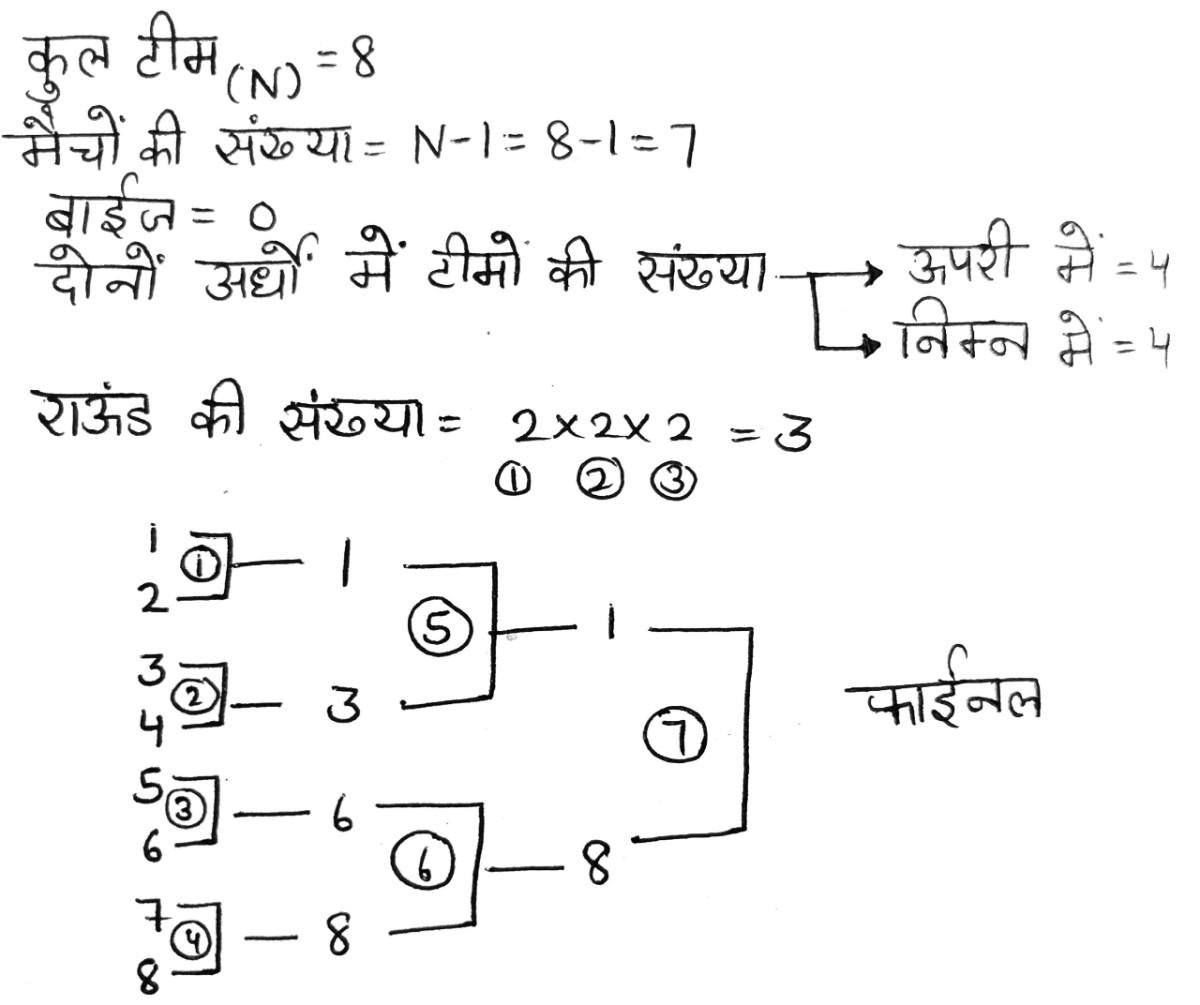 कुल टीम (N) = 8
मैचों की संख्या = N-1 = 8-1 = 7
बाईज = 0
दोनों अर्धों में टीमों की संख्या → ऊपरी में = 4
→ निम्न में = 4
राऊंड की संख्या = 2×2×2 = 3
① ② ③
1
① 1
2
⑤ 1
3
② 3
4
⑦ फाईनल
5
③ 6
6
⑥ 8
7
④ 8
8